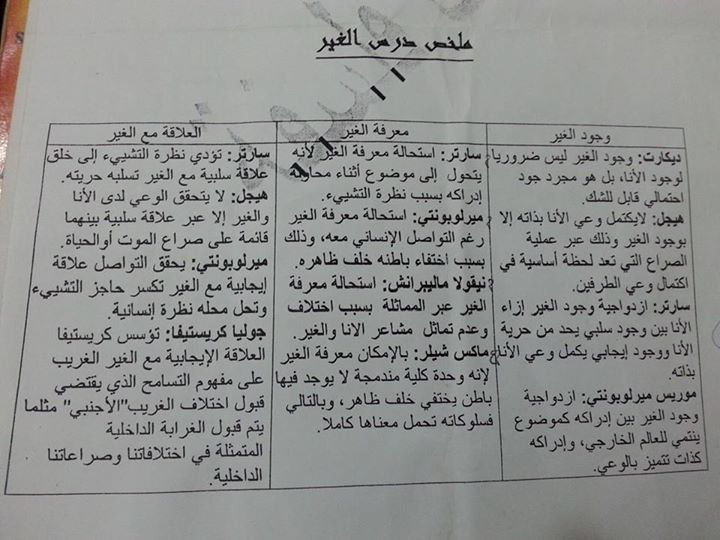 ملخص درس الغير
وجود الغير
ديكارت: وجود الغير ليس ضروريا
لوجود الأنا، بل هو مجرد جود
احتمالي قابل للشك.
هيجل: لايكتمل وعي الأنا بذاته إلا
بوجود الغير وذلك عبر عملية
الصراع التي تعد لحظة أساسية في
اكتمال وعي الطرفين.
سارتر: ازدواجية وجود الغير إزاء
الأنا بين وجود سلبي يحد من حرية
الأنا ووجود إيجابي يكمل وعي الأنا
بذاته.
موريس ميرلوبونتي: ازدواجية
وجود الغير بين إدراكه كموضوع
ينتمي للعالم الخارجي، وإدراكه
كذات تتميز بالوعي.
معرفة الغير
سارتر: استحالة معرفة الغير لأنه
يتحول إلى موضوع أثناء محاولة
إدراكه بسبب نظرة التشييء.
ميرلوبونتي: استحالة معرفة الغير
رغم التواصل الإنساني معه، وذلك
بسبب اختفاء باطنه خلف ظاهره.
نيقولا ماليبرانش: استحالة معرفة
الغير عبر المماثلة بسبب اختلاف
وعدم تماثل مشاعر الانا والغير.
ماكس شيلر: بالإمكان معرفة الغير
لإنه وحدة كلية مندمجة لا يوجد فيها
باطن يختفي خلف ظاهر، وبالتالي
فسلوكاته تحمل معناها كاملا.
العلاقة مع الغير
سارتر: تؤدي نظرة التشييء إلى خلق
علاقة سلبية مع الغير تسلبه حريته.
هيجل: لا يتحقق الوعي لدى الأنا
والغير إلا عبر علاقة سلبية بينهما
قائمة على صراع الموت أوالحياة.
ميرلوبونتي: يحقق التواصل علاقة
إيجابية مع الغير تكسر حاجز التشييء
وتحل محله نظرة إنسانية.
جوليا كريستيفا: تؤسس كريستيفا
العلاقة الإيجابية مع الغير الغريب
على مفهوم التسامح الذي يقتضي
قبول اختلاف الغريب"الأجنبي" مثلما
يتم قبول الغرابة الداخلية
المتمثلة في اختلافاتنا وصراعاتنا
الداخلية.